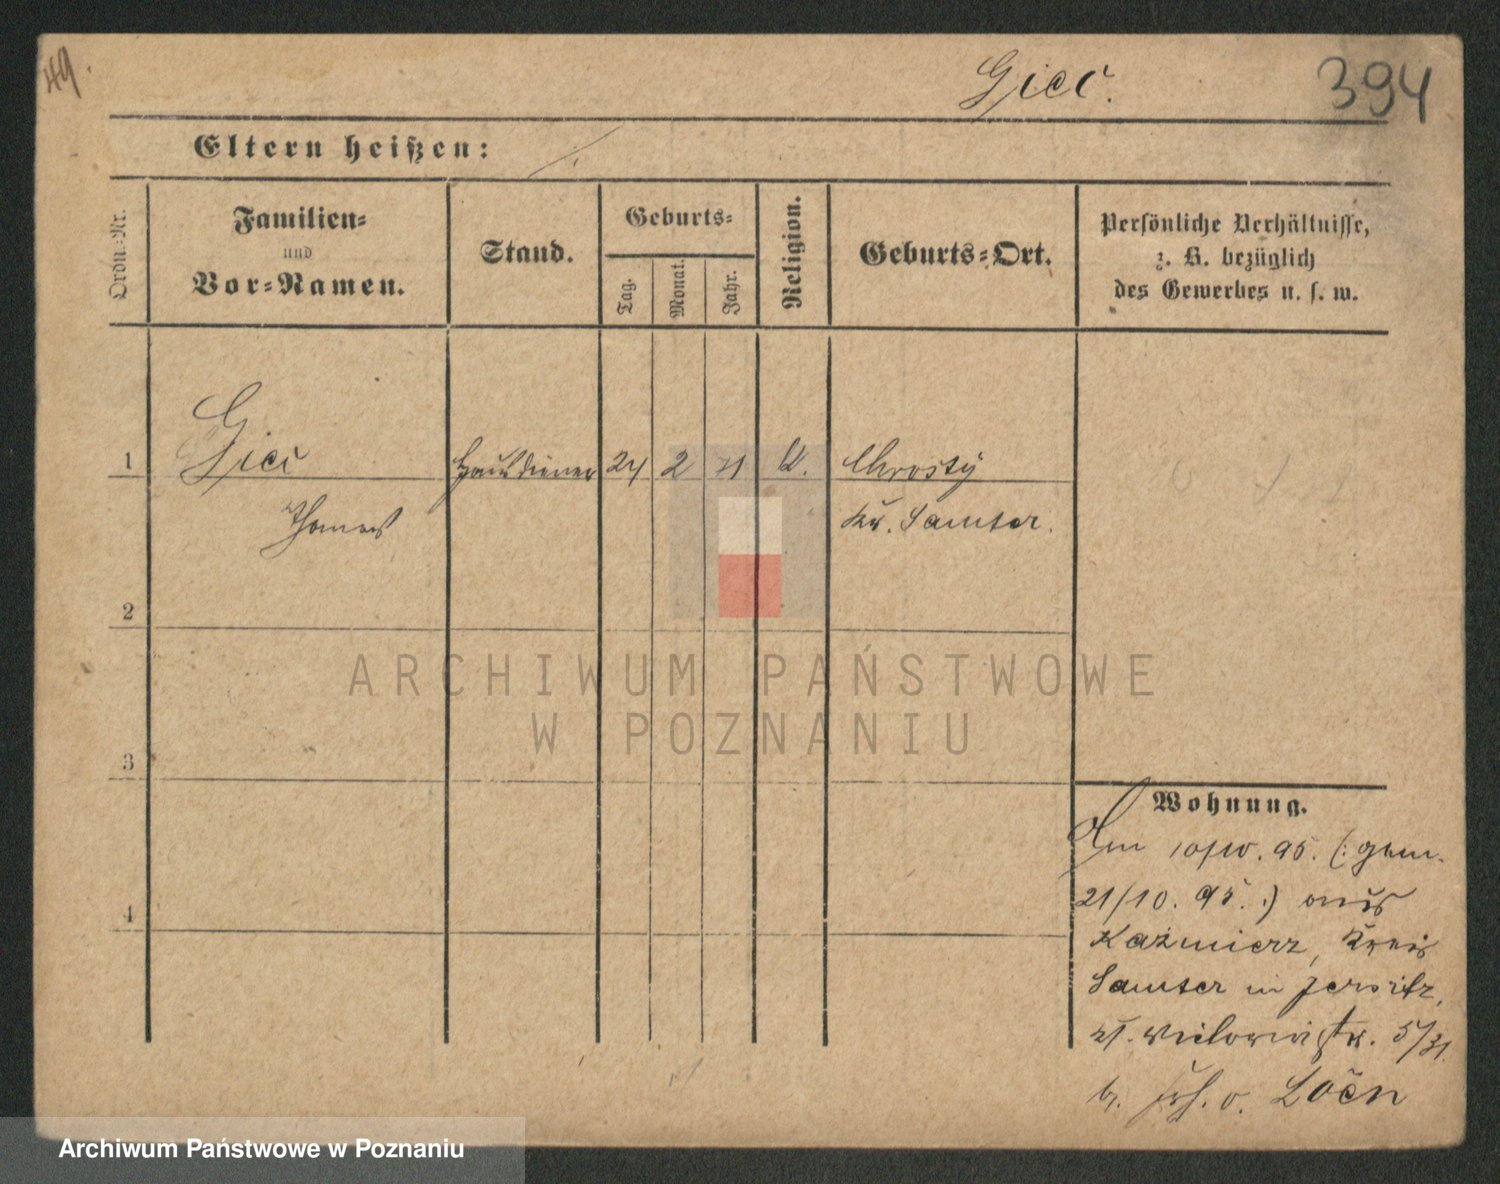 49.
Giec.
394
Eltern heißen:
Ordn.-Nr.
Familien-
und
Vor-Namen.
Stand.
Geburts-
Tag.
Monat.
Jahr.
Religion.
Geburts-Ort.
Persönliche Verhältnisse,
z. B. bezüglich
des Gewerbes u. s. w.
1 Giec Hausdiener 24 2 71 K. Chrosty
Thomas Kr. Samter.
2
3
4
Wohnung.
Am 10/10. 95. (: gem.
21/10. 95. :) aus
Kaźmierz, Kreis
Samter in Jersitz,
5/31.
b. v.
ARCHIWUM PAŃSTWOWE
W POZNANIU
Archiwum Państwowe w Poznaniu